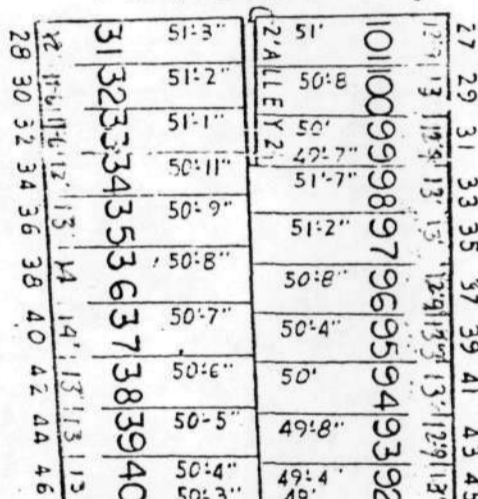 28 30 32 34 36 38 40 42 44 46
12' 11-6 11-6 12' 13' 14 14' 13' 13 13
31 32 33 34 35 36 37 38 39 40
51-3"
51-2"
51-1"
50-11"
50-9"
50-8"
50-7"
50-6"
50-5"
50-4"
50-3"
2'ALLEY 2'
51'
50-8
50'
49-7"
51'-7"
51-2"
50-8"
50-4"
50'
49-8"
49-4
49'
101 100 99 98 97 96 95 94 93 92
13 13' 13' 12'9 13' 12'9 13'
27 29 31 33 35 37 39 41 43 45